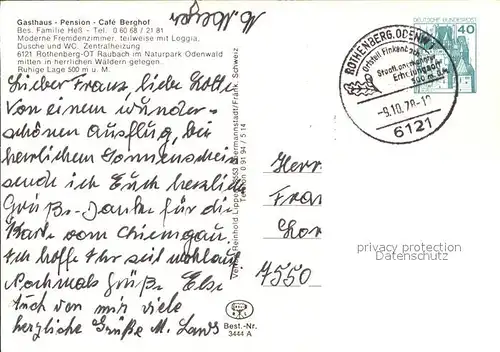 Gasthaus - Pension - Café Berghof
Bes. Familie Heß - Tel. 0 60 68 / 21 81
Moderne Fremdenzimmer, teilweise mit Loggia,
Dusche und WC. Zentralheizung
6121 Rothenberg-OT Raubach im Naturpark Odenwald
mitten in herrlichen Wäldern gelegen.
Ruhige Lage 500 m ü. M.
Lieber Franz, liebe Lotte
Von einem wunder-
schönen Ausflug, bei
herrlichem Sonnenschein
sende ich Euch herzliche
Grüße. Danke für die
Karte vom Chiemgau.
Ich hoffe Ihr seid wohlauf
Nochmals Grüße Else
Auch von mir viele
herzliche Grüße M.
Reinhold Lippert, 8553 Ebermannstadt/Fränk. Schweiz
Telefon 0 91 94 / 5 14
Best.-Nr.
3444 A
DEUTSCHE BUNDESPOST
40
ROTHENBERG, ODENW
Ortsteil Finkenbach
Staatl. anerkannter
Erholungsort
-9.10.78-
6121
Herr
7550
privacy protection
Datenschutz